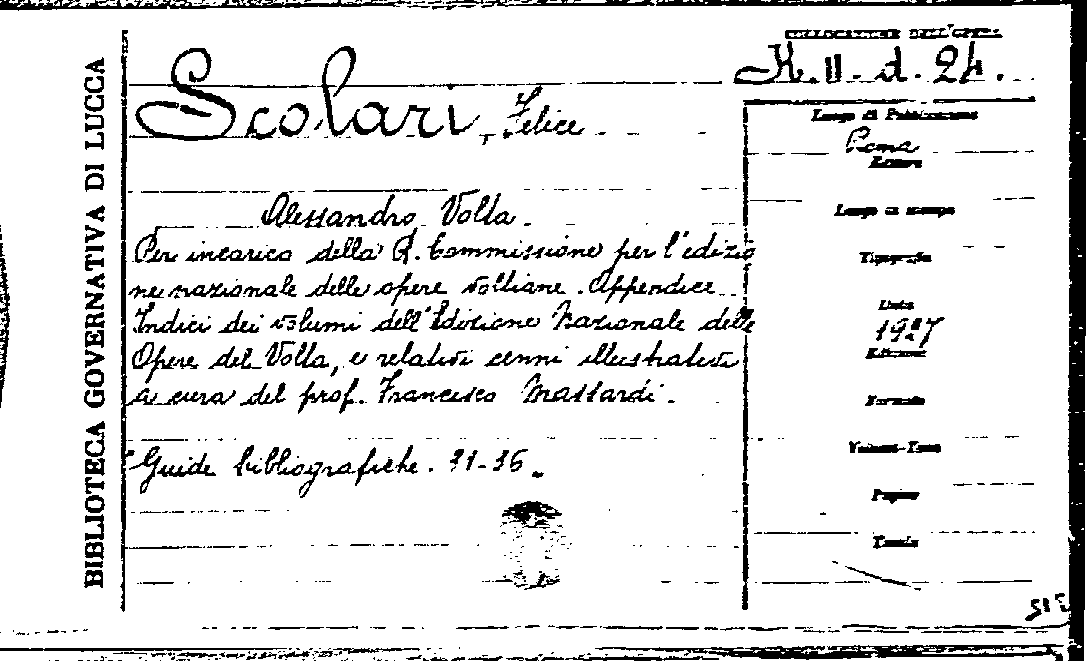 BIBLIOTECA GOVERNATIVA DI LUCCA
COLLOCAZIONE DELL'OPERA
K. II. d. 24.
Scolari, Felice
Alessandro Volta.
Per incarico della R. Commissione per l'edizio
ne nazionale delle opere voltiane. Appendice
Indici dei volumi dell'Edizione Nazionale delle
Opere del Volta, e relativi cenni illustrativi
a cura del prof. Francesco Massardi.
Guide bibliografiche. 31-36.
Luogo di Pubblicazione
Roma
Editore
Luogo di stampa
Tipografia
Data
1927
Edizione
Formato
Volumi-Tomi
Pagine
Tavole